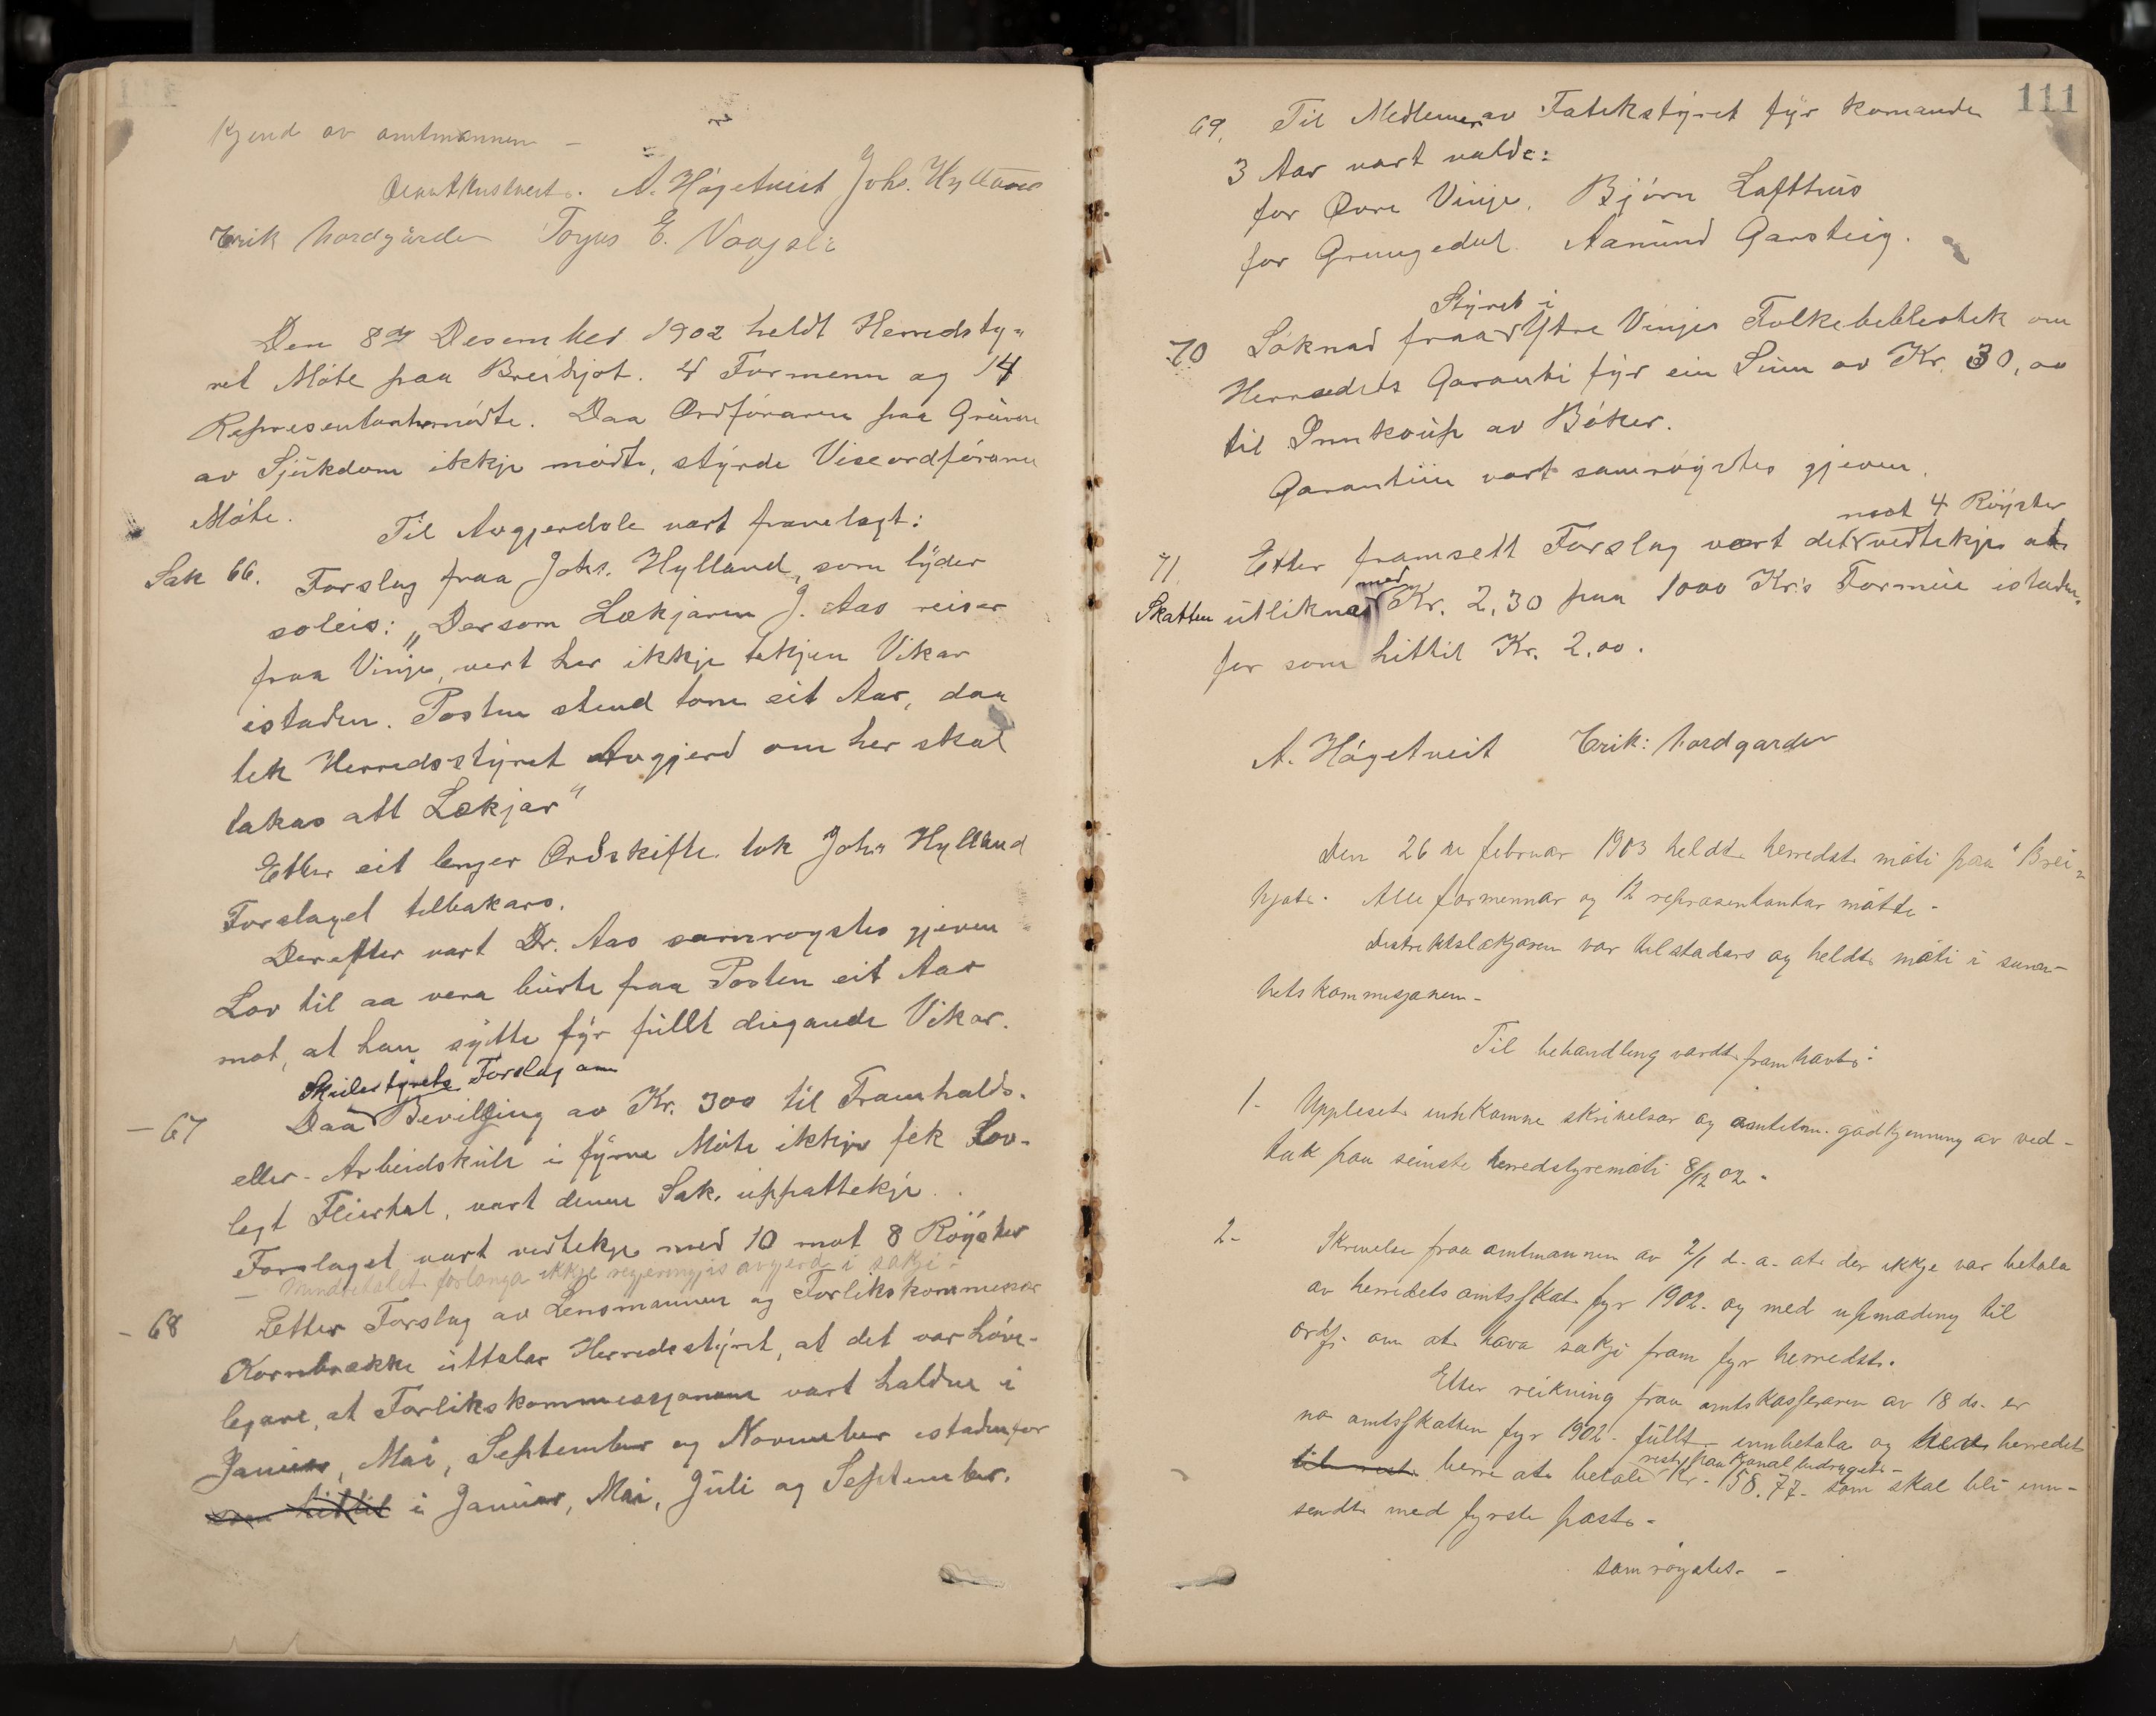 kjend av amtmannen –
A. Högetveit Johs. Hylland
Erik Nordgarden Torjus E. Vaagsli
Den 8de Desember 1902 heldt Herredsty-
ret Möte paa Breidijot. 4 Formenn og 14
Representantar mödte. Daa Ordföraren paa Grunn
av Sjukdom ikkje mödte, styrde Viseordföraren
Möte.
Til Avgjerdsle vart framlagt:
Sak 66. Forslag fraa Johs. Hylland, som lyder
soleis: „Dersom Lækjaren J. Aas reiser
fraa Vinje, vert her ikkje tekjen Vikar
istaden. Posten stend tom eit Aar, daa
tek Herredsstyret Avgjerd om her skal
takas att Lækjar"
Etter eit lenger Ordskifte tok Johs Hylland
Forslaget tilbakars.
Derefter vart Dr. Aas samrøystes gjeven
Lov til aa vera burte fraa Posten eit Aar
mot, at han sytte fyr fullt dugande Vikar.
Skulestyrets Forslag om
– 67 Daa Bevilging av Kr. 300 til Framhalds-
eller Arbeidskule i fyrre Möte ikkje fek Lov-
legt Fleirtal, vart denne Sak uppattekje.
Forslaget vart vedtekje med 10 mot 8 Röyster
– Mindretalet forlanga ikkje regjeringis avgjerd i sakji –
– 68 Etter Forslag av Lensmannen og Forlikskommissær
Kornbrække uttalar Herredsstyret, at det var höve-
legare, at Forlikskommissjonane vart haldne i
Januar, Mai, September og November istadenfor
som hittil i Januar, Mai, Juli og September.
111
69. Til Medlemer av Fatekstyret fyr komande
3 Aar vart valde:
for Øvre Vinje. Björn Lofthus
for Grungedal. Aamund Garsteig.
Styret i
70 Söknad fraa Ytre Vinjes Folkebibliotek om
Herredets Garanti fyr ein Sum av Kr. 30,00
til Innkoup av Böker.
Garantiin vart samröystes gjeven.
mot 4 Röyster
71. Etter framsett Forslag vart det vedtekje at
med
Skatten utliknas Kr. 2,30 paa 1000 Kr's Formue istaden-
for som hittil Kr. 2,00.
A. Högetveit Erik Nordgarden
Den 26de februar 1903 heldt herredst. möti paa "Brei-
hjot". Alle formennar og 12 repræsentantar mötte –
Distriktslækjaren var tilstadars og heldt möti i sunn-
hetskommisjonen –
Til behandling vardt framhavt:
1– Uppleset innkomne skrivelsar og amtetm. godkjenning av ved-
tak paa seinste herredstyremöti 8/12 02 –
2– Skrivelse fraa amtmannen av 2/1 d. a. at der ikkje var betala
av herredets amtsskat fyr 1902 og med upmoding til
ordf. om at hava sakji fram fyr herredst.
Etter reikning fraa amtskasseraren av 18 ds. er
no amtsskatten fyr 1902 fullt innbetala og herredet
rest paa Kanalbidraget –
til rest berre at betale Kr. 158.77 som skal bli inn-
sendt med fyrste post –
samröystes – –